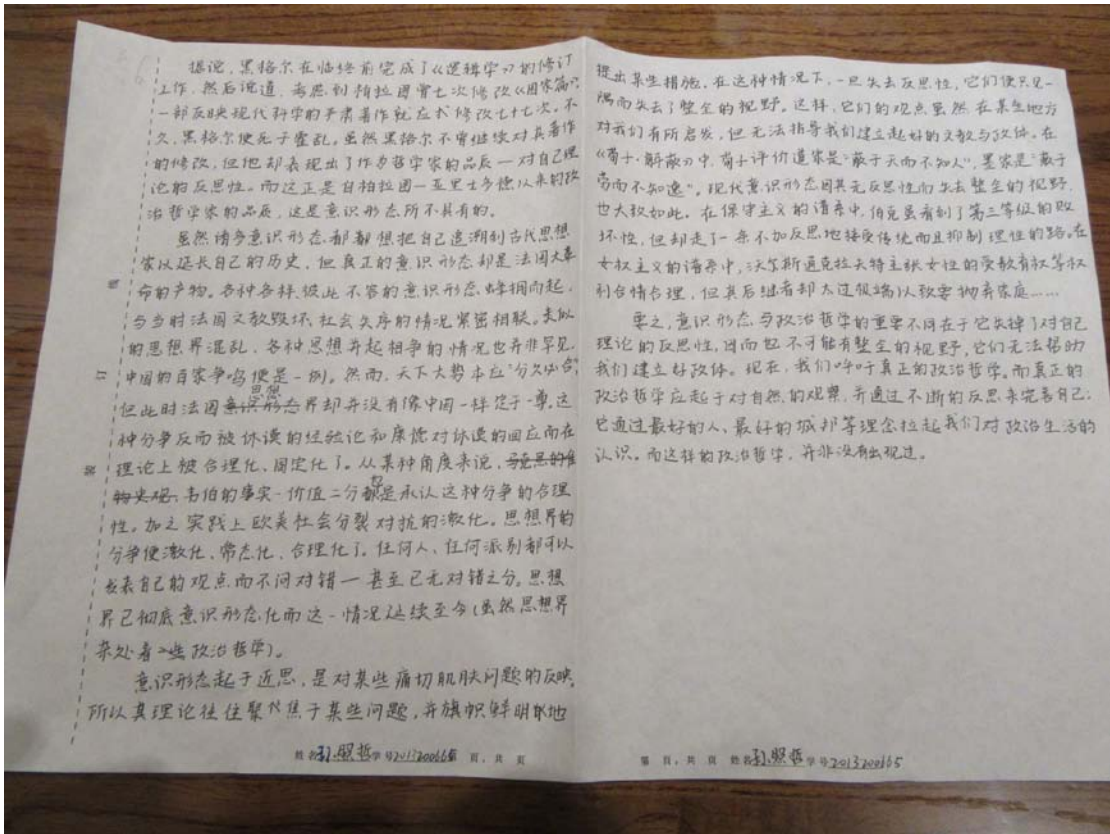 据说,黑格尔在临终前完成了《逻辑学》的修订
工作,然后说道,考虑到柏拉图曾七次修改《国家篇》,
一部反映现代科学的严肃著作就应术修改七十七次。不
久,黑格尔便死于霍乱。虽然黑格尔不曾继续对其著作
的修改,但他却表现出了作为哲学家的品质—对自己理
论的反思性。而这正是自柏拉图—亚里士多德以来的政
治哲学家的品质,这是意识形态所不具有的。
虽然诸多意识形态都都想把自己追溯到古代思想
家以延长自己的历史,但真正的意识形态却是法国大革
命的产物。各种各样、彼此不容的意识形态蜂拥而起,
与当时法国文教毁坏、社会失序的情况紧密相联。类似
的思想界混乱、各种思想并起相争的情况也并非罕见,
中国的百家争鸣便是一例。然而,天下大势本应“分久必合”,
思想
但此时法国意识形态界却并没有像中国一样定于一尊。这
种分争反而被休谟的经验论和康德对休谟的回应而在
理论上被合理化、固定化了。从某种角度来说,马克思的唯
物史观、韦伯的事实-价值二分都是承认这种分争的合理
性。加之实践上欧美社会分裂对抗的激化。思想界的
分争便激化、常态化、合理化了。任何人、任何派别都可以
发表自己的观点而不问对错—甚至已无对错之分。思想
界已彻底意识形态化而这一情况延续至今(虽然思想界
杂处着一些政治哲学)。
意识形态起于近思,是对某些痛切肌肤问题的反映,
所以其理论往往聚焦于某些问题,并旗帜鲜明地
姓名 孙照哲 学号 2013200665 页,共 页
提出某些措施。在这种情况下,一旦失去反思性,它们便只见一
隅而失去了整全的视野。这样,它们的观点虽然在某些地方
对我们有所启发,但无法指导我们建立起好的文教与政体。在
《荀子·解蔽》中,荀子评价道家是“蔽于天而不知人”,墨家是“蔽于
而不知”,现代意识形态因其无反思性而失去整全的视野,
也大致如此。在保守主义的谱系中,伯克虽看到了第三等级的败
坏性,但却走了一条不加反思地接受传统而且抑制理性的路。在
女权主义的谱系中,沃尔斯通克拉夫特主张女性的受教育权等权
利合情合理,但其后继者却太过极端以致要抛弃家庭……
要之,意识形态与政治哲学的重要不同在于它失掉了对自己
理论的反思性,因而也不可能有整全的视野,它们无法帮助
我们建立好政体。现在,我们呼吁真正的政治哲学。而真正的
政治哲学应起于对自然的观察,并通过不断的反思来完善自己;
它通过最好的人、最好的城邦等理念拉起我们对政治生活的
认识。而这样的政治哲学,并非没有出现过。
第 页,共 页 姓名 孙照哲 学号 2013200665